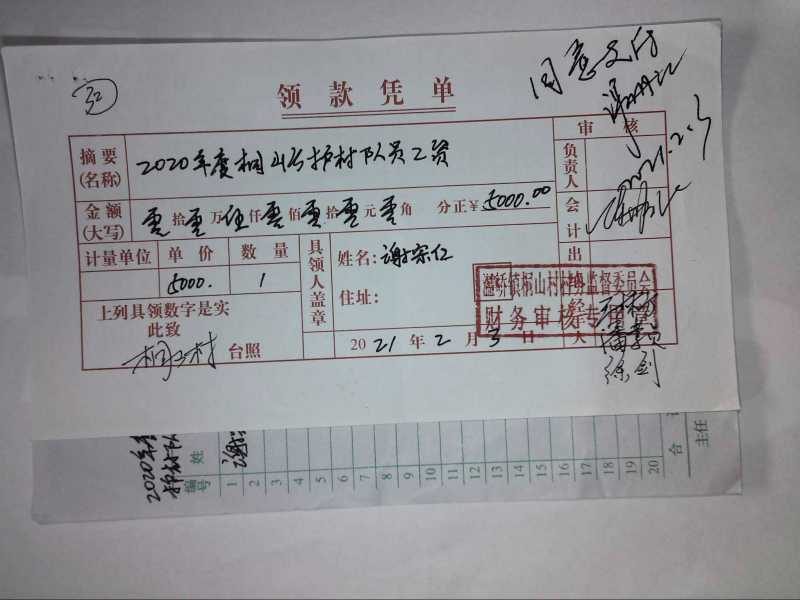 领款凭单
同意支付
2021.2.3
审核
摘要
(名称)
2020年度桐山村护村队员工资
负责人
金额
(大写)
零拾零万伍仟零佰零拾零元零角 分正¥5000.00
会计
计量单位 单价 数量
5000. 1
具领人盖章
姓名:谢宗仁
住址:
出纳
上列具领数字是实
此致
桐山村 台照
2021年2月3日
桐山村村务监督委员会
财务审核专用章
经手人
徐剑
2020年
护村队
编号
姓
1 谢
2
3
4
5
6
7
8
9
10
11
12
13
14
15
16
17
18
19
20
合
主任